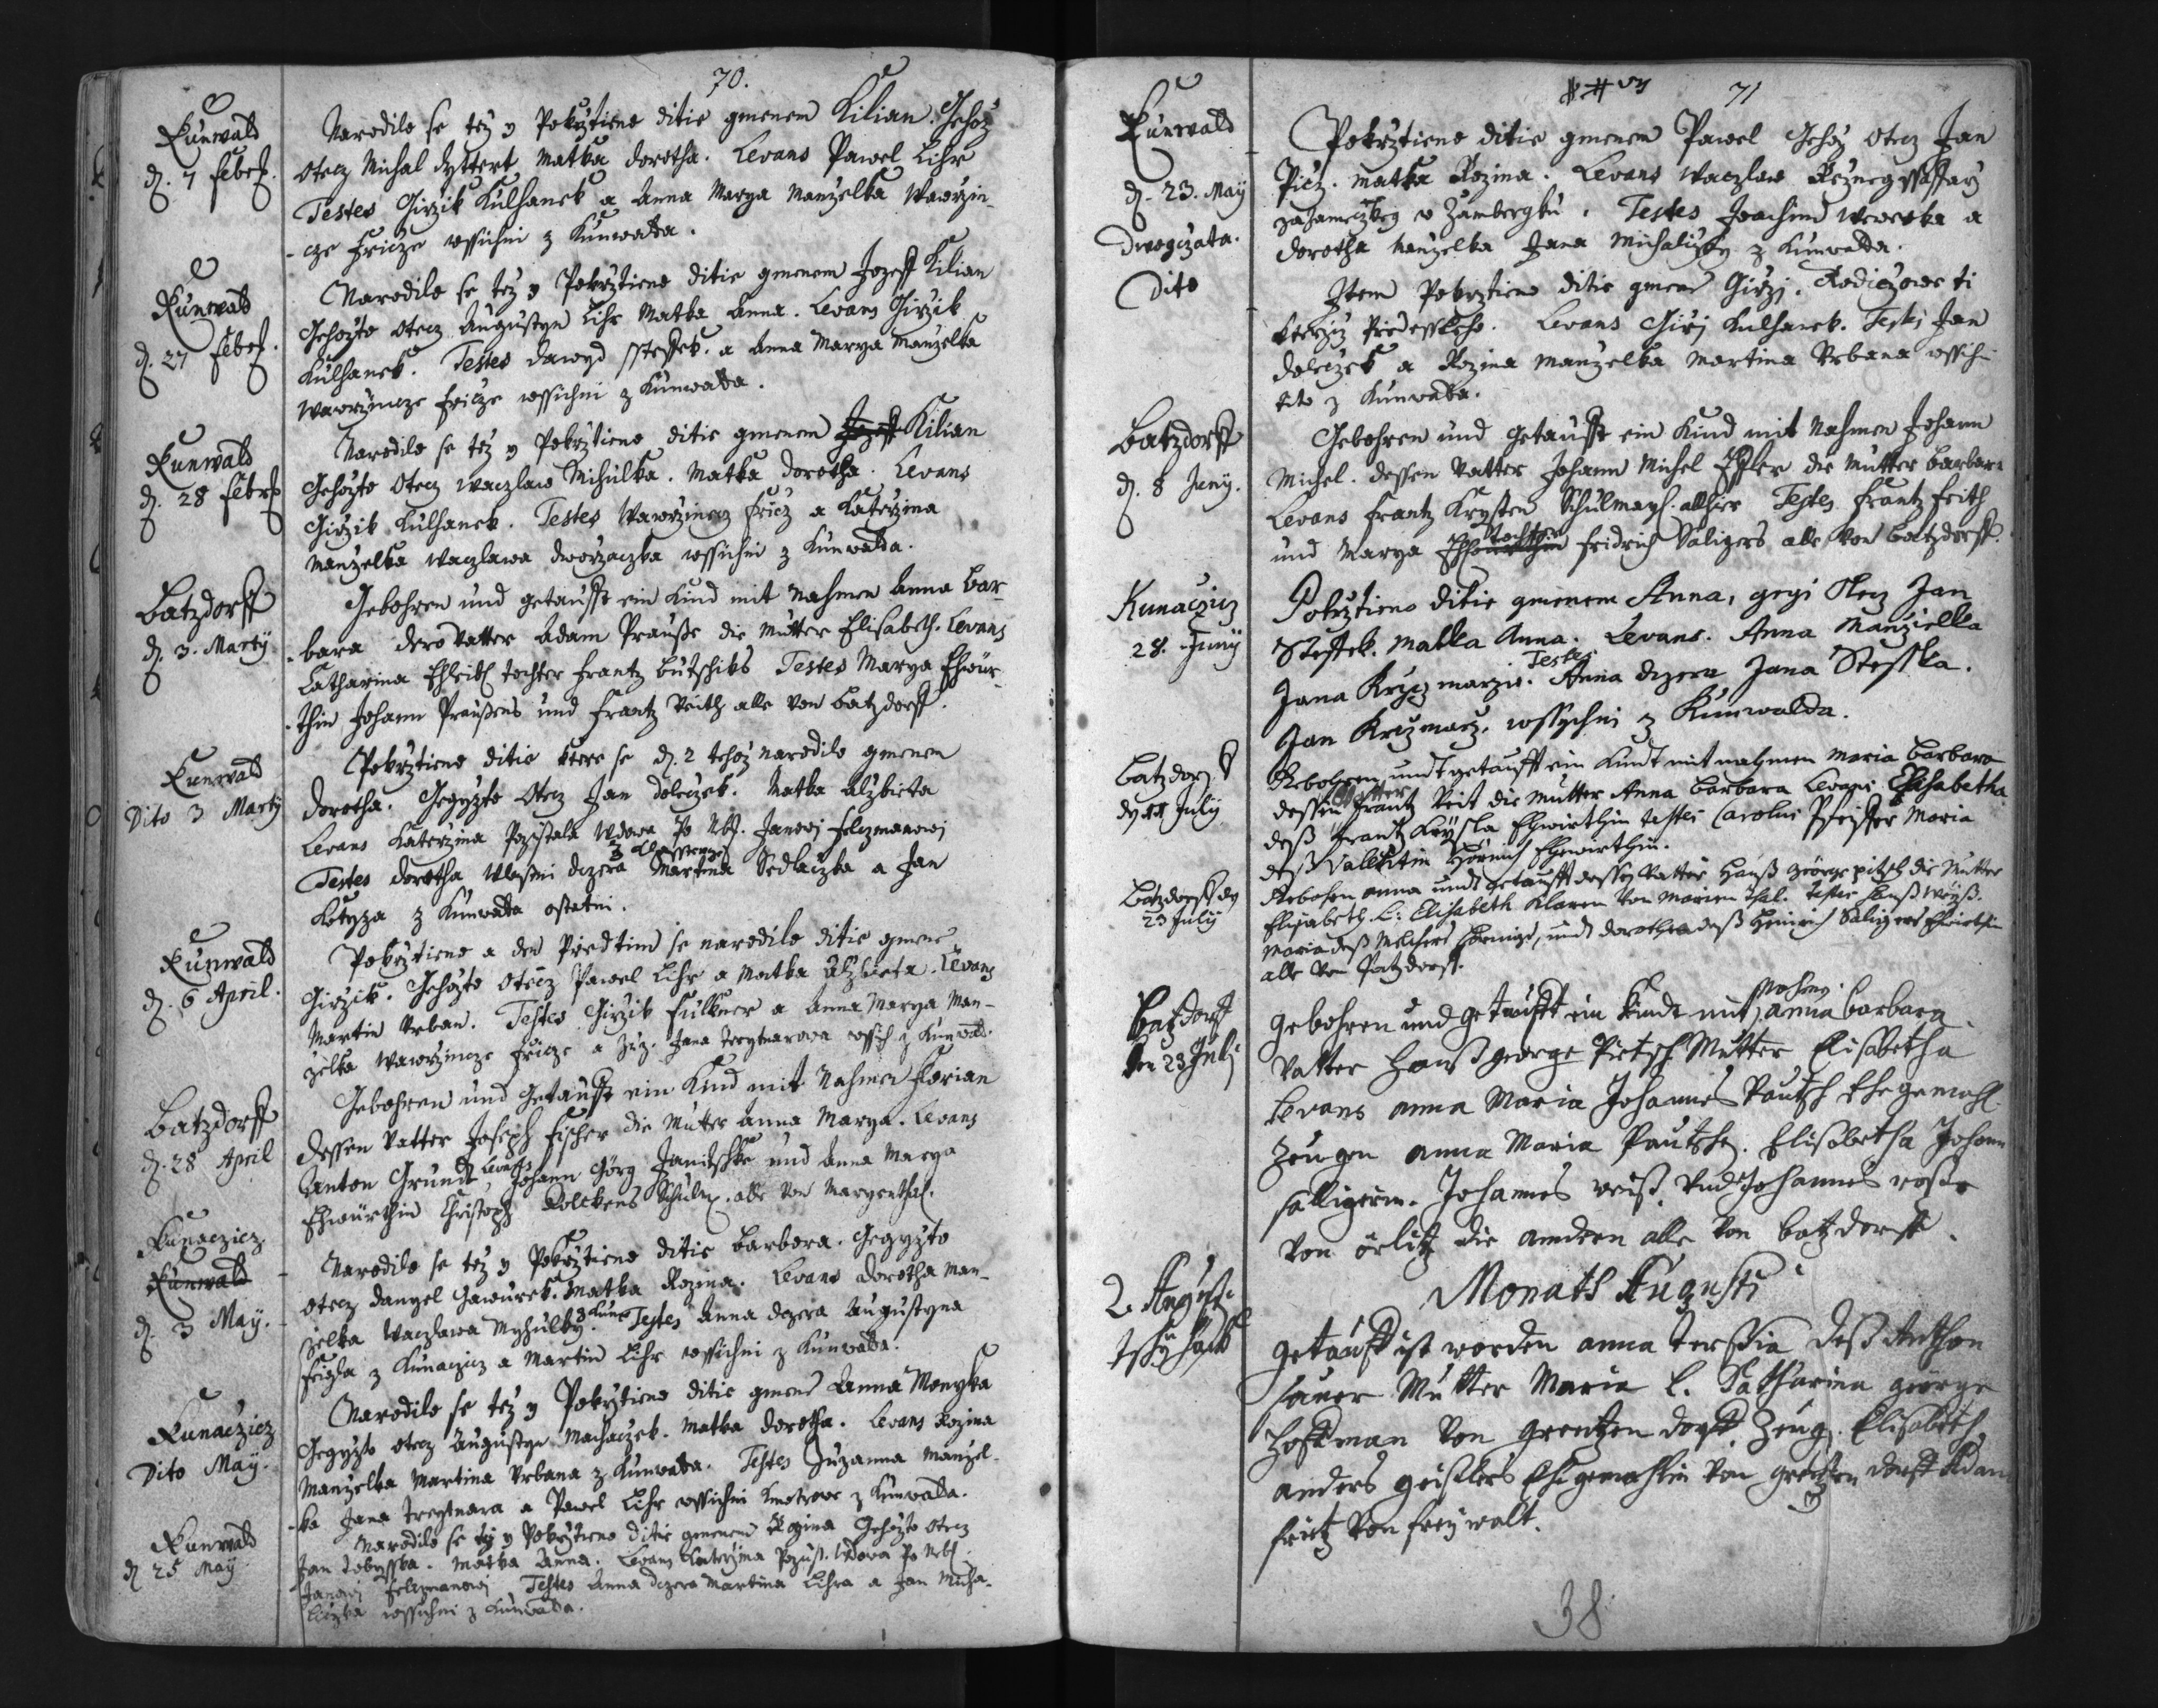 70.
Kunwald
d. 7 Febr.
Narodilo se téz y Pokrztieno ditie gmenem Kilian. Gehoz
Otecz Michal dyttert Matka dorotha. Levans Pawel Lihr
Testes Girzik Kulhanek a Anna Marya Manzelka Wawrzin-
-cze Fricze wssichni z Kunwalda.
Kunwald
d. 27 Febr.
Narodilo se téz y Pokrztieno ditie gmenem Jozeff Kilian
Gehozto Otecz Augustyn Lihr Matka Anna. Levans Girzik
Kulhanek. Testes dawyd Steffek. a Anna Marya Manzelka
Wawrzincze Fricze wssichni z Kunwalda.
Kunwald
d. 28 Febr.
Narodilo se téz y Pokrztieno ditie gmenem Jozeff Kilian
Gehozto Otecz Waczlaw Michulka. Matka dorotha. Levans
Girzik Kulhanek. Testes Wawrzinecz Fricz a Katerzina
Manzelka Waczlawa dworzaczka wssichni z Kunwalda.
Batzdorff
d. 3. Marty
Gebohren und getaufft ein Kind mit Nahmen Anna Bar-
-bara dero Vatter Adam Prauße die Mutter Elisabeth. Levans
Catharina tochter Frantz Butschiks Testes Marya Ehwür-
-thin Johann Praußens und Frantz Veith alle von Batzdorff.
Kunwald
Dito 3 Marty
Pokrztieno ditie ktere se d. 2 tehoz narodilo gmenem
dorotha. Gegyzto Otecz Jan doleczek. Matka Alzbieta
Levans Katerzina Pozustala Wdowa Po Neb. Janowi Felczmanowi
Testes dorotha Wlastni dczera Martina Sedlaczka a Jan
Kotyza z Kunwalda ostatni.
Kunwald
d. 6 April.
Pokrztieno a den Przedtim se narodilo ditie gmenem
Girzik. Gehozto Otecz Pawel Lihr a Matka Alzbieta. Levans
Martin Urban. Testes Girzik Fulkner a Anna Marya Man-
zelka Wawrzincze Fricze a Jana wssich. z Kunwald.
Batzdorff
d. 28 April
Gebohren und Getaufft ein Kind mit Nahmen Florian
dessen Vatter Joseph Fischer die Mutter Anna Marya. Levans
Anton Grundt, Johann Görg Janitschke und Anna Marya
Ehwürthin Christoph alle von Maryenthal.
Kunaczicz
Kunwald
d. 3 May.
Narodilo se téz y Pokrztieno ditie Barbora. Gegyzto
Otecz danyel Gawurek. Matka Rozina. Levans dorotha Man-
zelka Waczlawa Myhulky z Kunw. Testes Anna dczera Augustyna
z Kunaczicz a Martin Lihr wssichni z Kunwalda.
Kunaczicz
Dito May.
Narodilo se téz y Pokrztieno ditie gmenem Anna Monyka
Gegyzto otecz Augustyn Machaczek. Matka dorotha. Levans Rozina
Manzelka Martina Urbana z Kunwalda. Testes Zuzanna Manzel-
-ka Jana Treytnara a Pawel Lihr wssichni Kmotrowe z Kunwalda.
Kunwald
d. 25 May
Narodilo se téz y Pokrztieno ditie gmenem Gehozto Otecz
Jan. Matka Anna. Levans Katerzina Pozust. Wdowa Po Nebl.
Janowi Felczmanowi. Testes Anna dczera Martina Lihra a Jan Micha-
liczka wssichni z Kunwalda.
71
Kunwald
d. 23. May
dwogczata.
Pokrztieno ditie gmenem Pawel Gehoz Otecz Jan
Picz. Matka Rozina. Levans Waczlaw
w Zambergku. Testes Joachim Wewerka a
dorotha Manzelka Jana Michaliczky z Kunwalda.
Dito
Item Pokrztieno ditie gmenem Girzj. Rodiczowe ti
kterziz Przedessleho. Levans Girj Kulhanek. Testes Jan
doleczek a Rozina Manzelka Martina Urbana wssich-
z Kunwalda.
Batzdorff
d. 8 Juny.
Gebohren und Getaufft ein Kind mit Nahmen Johann
Michel. dessen Vatter Johann Michel die Mutter Barbara
Levans Frantz Krysten Schulmays. allhier Testes Frantz Feith
tochter
und Marya Fridrich Saligers alle von Batzdorff.
Kunaczicz
28. Juny
Pokrztieno ditie gmenem Anna, gegi Otecz Jan
Steffek. Matka Anna. Levans. Anna Manzielka
Testes
Jana Kryczmarzie. Anna dczera Jana Steffka.
Jan Kreczmarz. wssychni z Kunwalda.
Batzdorf
July
Gebohren undt getaufft ein Kindt mit nahmen Maria Barbara
Vatter
dessen Frantz Veit die Mutter Anna Barbara Levans Elisabetha
deß Frantz Krysta Ehwirthin testes Carolus Pfeiffer Maria
deß Vallentin Hörnich Ehewirthin.
Batzdorff den
23 July
Gebohren anna undt getaufft dessen Vatter Hanß George pitsch die Mutter
Elisabeth. L: Elisabeth Klaren von Marien thal. Testes Hanß Weyß.
Maria deß Melcher Hornigs, undt dorothea deß Heinrich Saligers Ehwirthin
alle von Batzdorff.
Batzdorff
den 23 July
Nahmen
gebohren und getaufft ein Kindt mit anna barbara
Vatter Hanß george Pietsch Mutter Elisabetha
Levans anna Maria Johannes Pautsch Ehegemahl.
Zeugen anna Maria Pautsche. Elisabetha Johann
salligerin. Johannes weiß. Und Johannes
von örlitz die andern alle von batzdorff.
Monats Augusti
2. August
getaufft ist worden anna deß Anthon
Mutter Maria L. Catharina george
Hoffman von grentzen dorff Zeug. Elisabeth
anders geißlers Ehegemahlin von grentzen dorff Adam
fritz von freywalt.
38